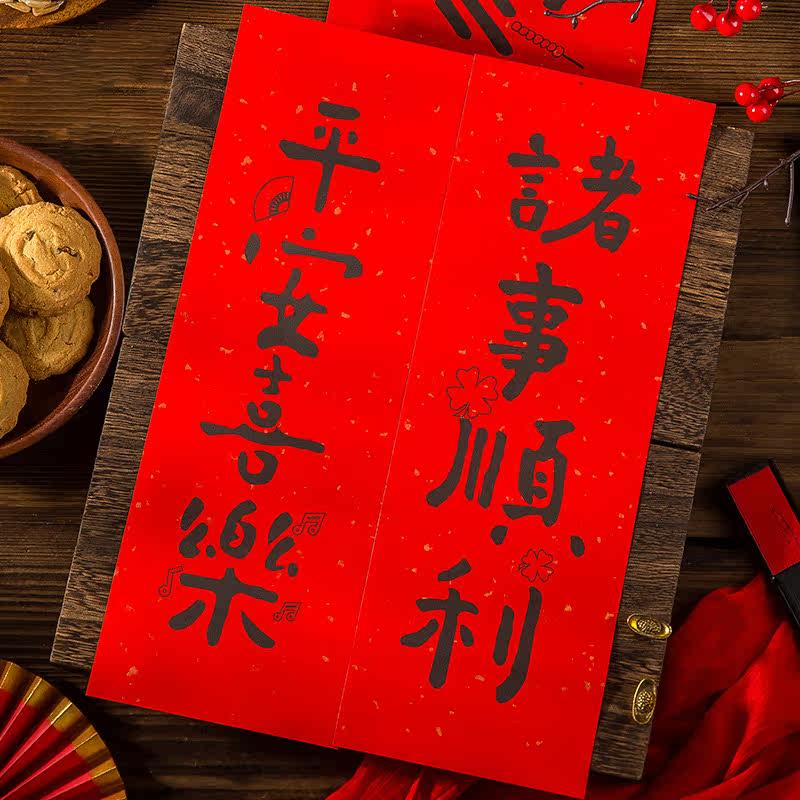 諸事順利
平安喜樂